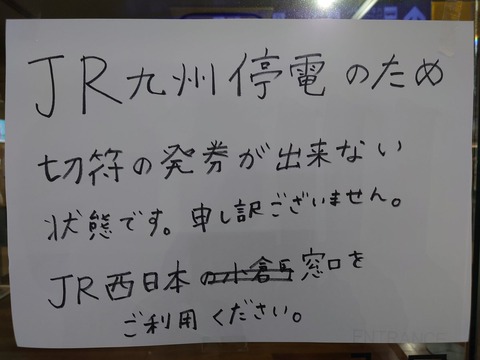 JR九州停電のため
切符の発券が出来ない
状態です。申し訳ございません。
JR西日本の小倉駅窓口を
ご利用ください。
ENTRANCE